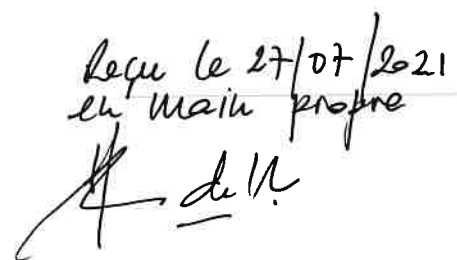 Reçu le 27/07/2021
en main propre